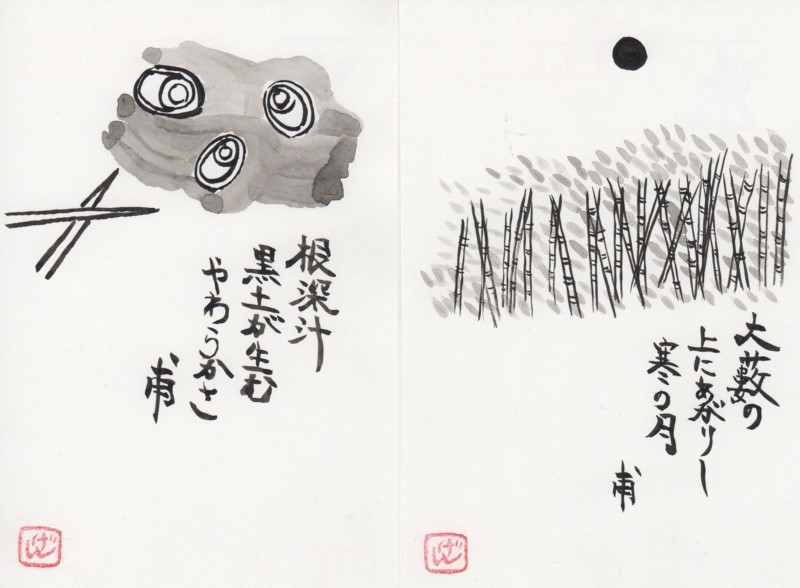 根深汁
黒土が生む
やわらかさ
甫
大藪の
上にあがりし
寒の月
甫